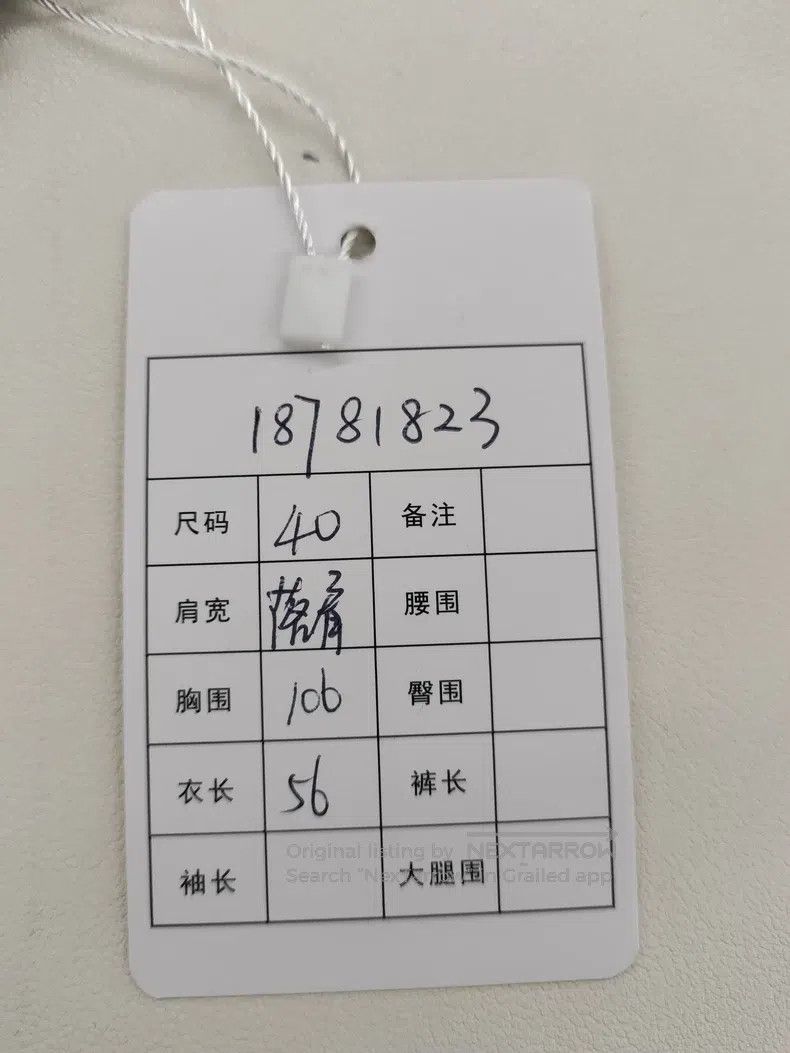 18781823
尺码 40 备注
肩宽 落肩 腰围
胸围 106 臀围
衣长 56 裤长
袖长 大腿围
Original listing by NEXTARROW
Search "Nextarrow" in Grailed app